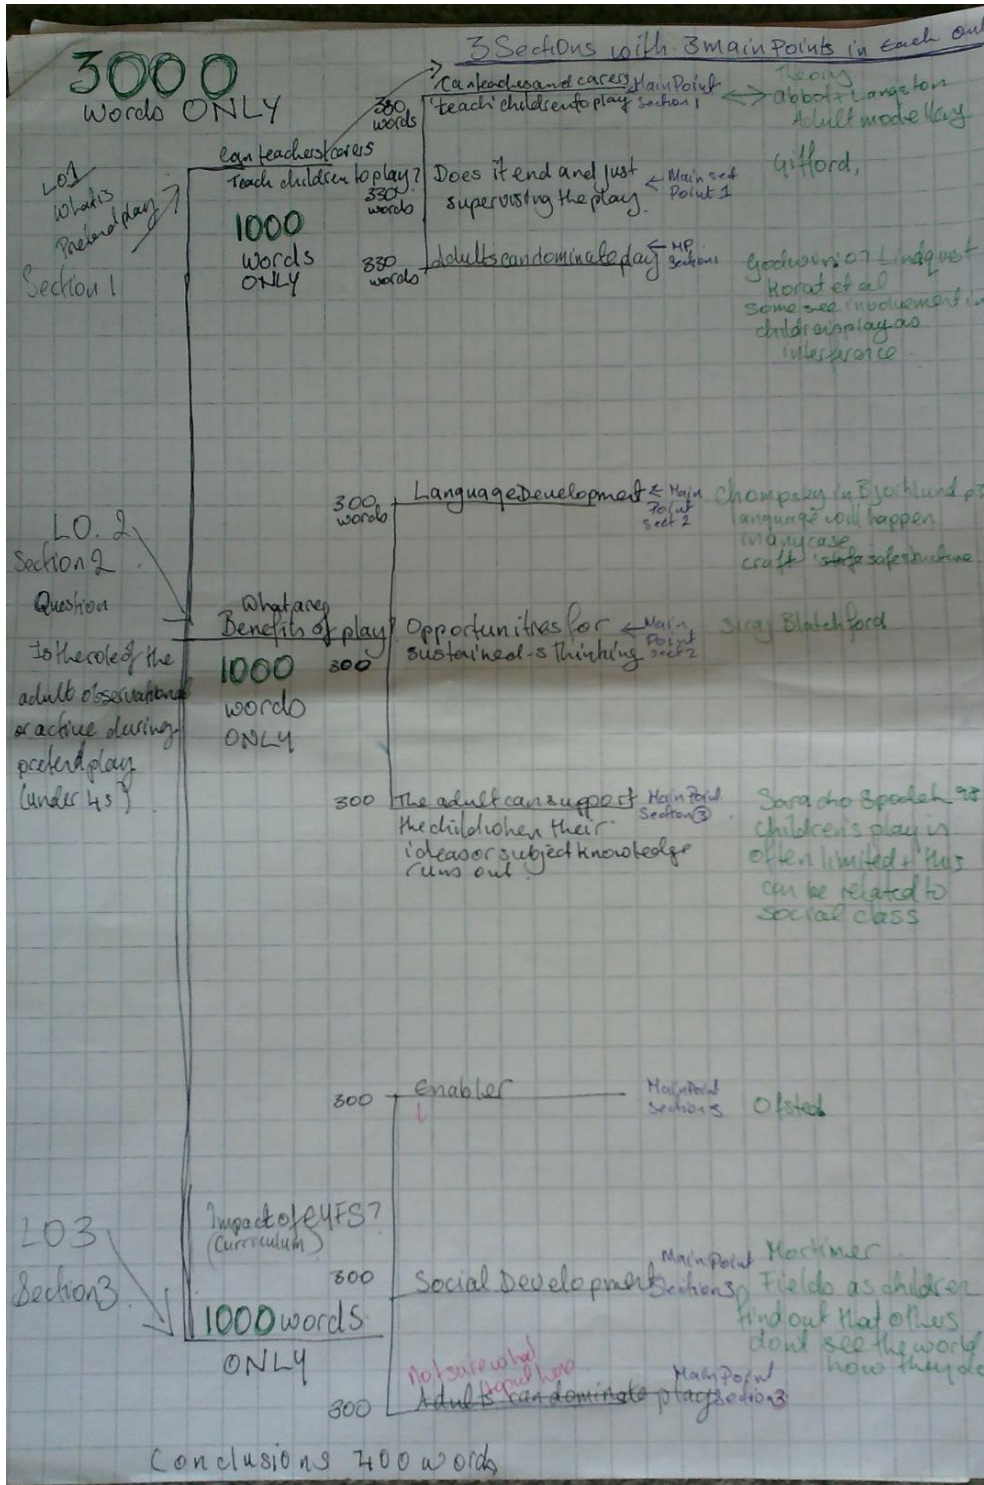 3 Sections with 3 main Points in Each one
3000
words ONLY
Can teachers and carers
teach children to play
380
words
Main Point
Section 1
Theory
Abbott + Langston
Adult modelling
LO1
What is
Pretend play
Section 1
Can teachers/carers
Teach children to play?
1000
words
ONLY
330
words
Does it end and just
supervising the play.
Main sect
Point 1
Gifford,
330
words
Adults can dominate play
MP
Section 1
Godwin 07 Lindqvist
Korat et al
some see involvement in
children play as
interference
LO. 2
Section 2
Question
Is the role of the
adult observational
or active during
pretend play
(under 4s)
What are
Benefits of play
1000
words
ONLY
300
words
Language Development
Main
Point
sect 2
Chompsky in Bjorklund p3
language will happen
in any case
craft safe structure
300
Opportunities for
sustained-s thinking
Main
Point
sect 2
Siraj Blatchford
300
The adult can support
the child when their
ideas or subject knowledge
runs out
Main Point
Section 3
Saracho Spodek 98
Children's play is
often limited + this
can be related to
social class
LO3
Section 3
Impact of EYFS?
(Curriculum)
1000 words
ONLY
300
Enabler
Main Point
Section 3
Ofsted
300
Social Development
Main Point
Section 3
Mortimer
Fields as children
find out that others
dont see the world
how they do
300
Not sure what
Adults can dominate play
Main Point
Section 3
Conclusions 400 words